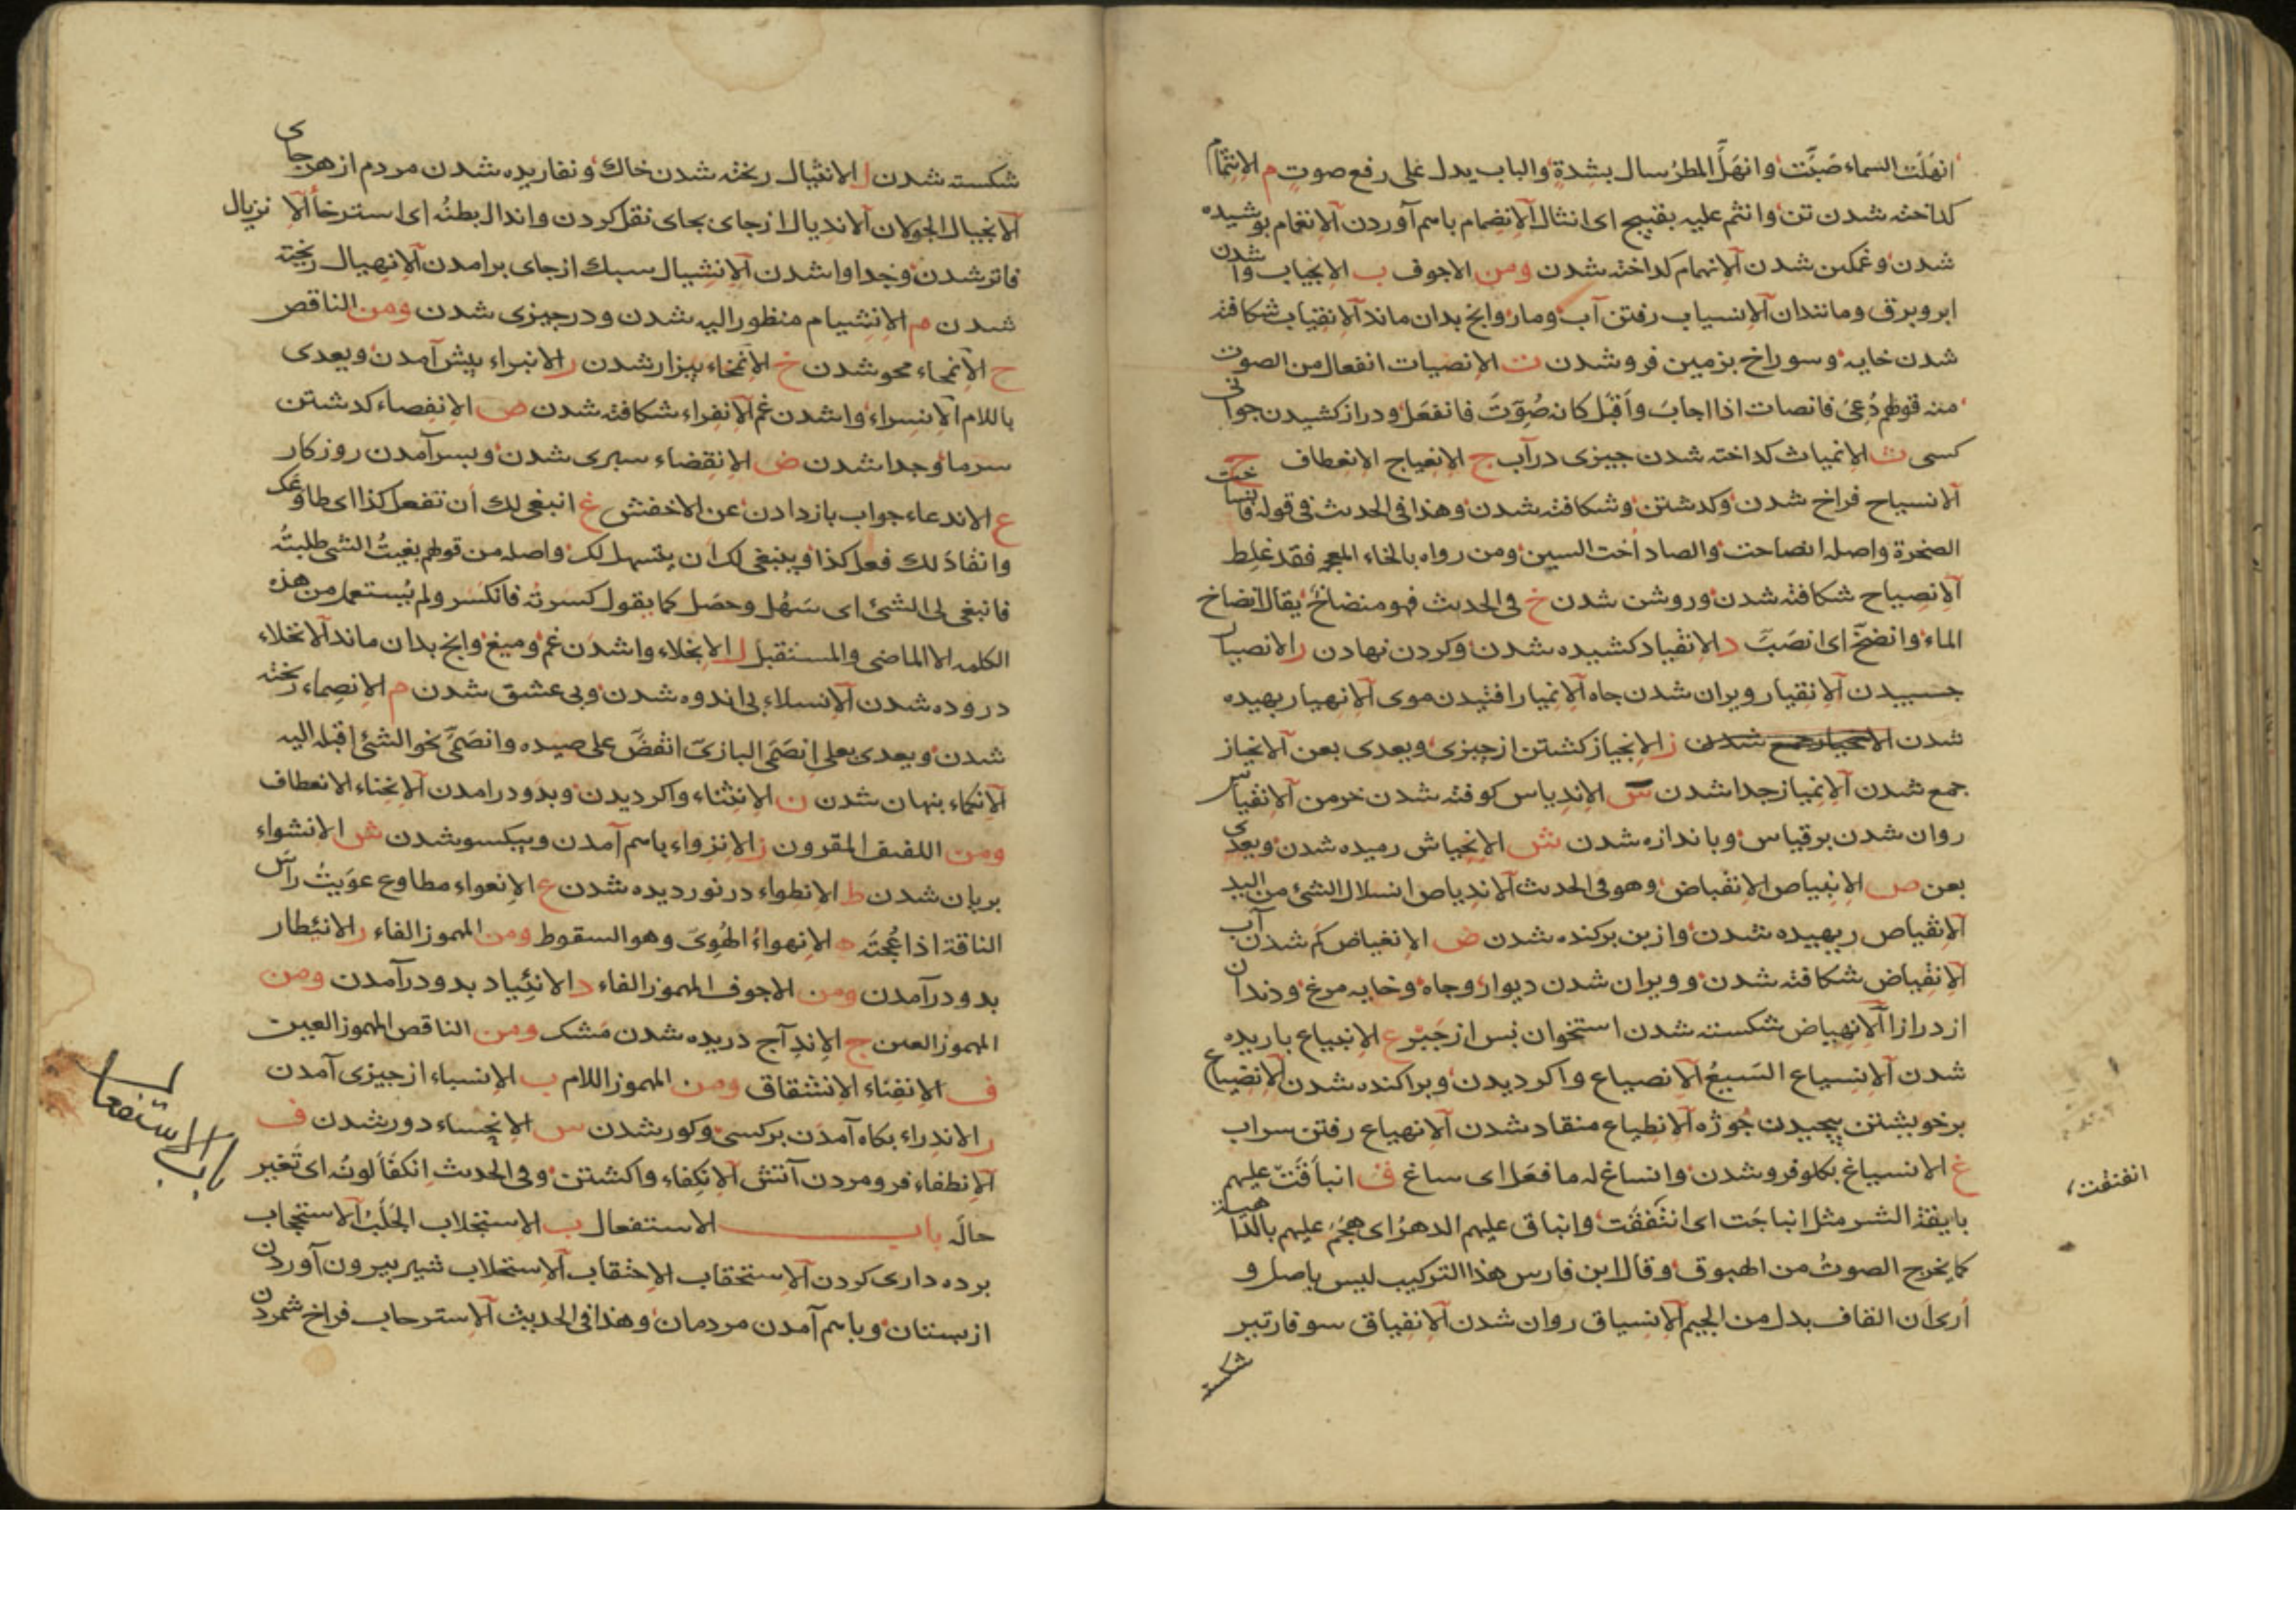 انهلّت السماء صَبّت وانهَلَّ المطرُ سال بشدةٍ والباب يدل على رفع صوتٍ م الانثمام
كداخته شدن تن وانثم عليه بقبيح اى انثال الانضمام باسم آوردن الانغمام بوشيده
شدن وغمكين شدن الانهمام كداخته شدن ومن الاجوف ب الانجياب وا شدن
ابر وبرق ومانندان الانسياب رفتن آب ومار وانج بدان ماند الانقياب شكافته
شدن خايه وسوراخ بزمين فرو شدن ت الانصيات انفعال من الصوت
منه قولهم دُعىَ فانصات اذا اجابَ واَقبَل كانه صُوّتَ فانفعَل ودراز كشيدن جوانى
كسى ث الانمياث كداخته شدن جيزى درآب ج الانعياج الانعطاف ح
الانسياح فراخ شدن وكدشتن وشكافته شدن وهذا فى الحديث فى قوله فانساحت
الصخرة واصله انصاحت والصاد اُخت السين ومن رواه بالخاء المعجمه فقد غلِط
الانصياح شكافته شدن وروشن شدن خ فى الحديث فهو منضاخ يقال انضاخ
الماء وانضخّ اى انصَبّ د الانقياد كشيده شدن وكردن نهادن ر الانصيار
جسبيدن الانقيار ويران شدن جاه الانميار افتيدن موى الانهيار ريهيده
شدن الانحياز جمع شدن ز الانحياز كشتن ازجيزى ويعدى بعن الانحياز
جمع شدن الانمياز جدا شدن س الاندياس كوفته شدن خرمن الانقياس
روان شدن برقياس وباندازه شدن ش الانحياش رميده شدن ويعدى
بعن ص الانبياص الانقباض وهو فى الحديث الاندياص انسلال الشئ من اليد
الانقياص ريهيده شدن وازبن بركنده شدن ض الانغياض كم شدن آب
الانقياض شكافته شدن وويران شدن ديوار وجاه وخايه مرغ ودندان
ازدرازا الانهياض شكسته شدن استخوان بس ازجَبْر ع الانبياع باريده
شدن الانسياع السَيعُ الانصياع واكرديدن وبراكنده شدن الانضياع
برخويشتن پيچيدن جُوژه الانطياع منقاد شدن الانهياع رفتن سراب
غ الانسياغ بكلو فرو شدن وانساغ له ما فعَل اى ساغ ق انباقَتْ عليهم
بايقة الشر مثل انباجَت اى انتَفقَت وانباق عليهم الدهرُ اى هجَمَ عليهم بالداهية
كما يخرج الصوتُ من البوق وقال ابن فارس هذا التركيب ليس باصل و
اَرى اَن القاف بدل من الجيم الانسياق روان شدن الانفياق سوفارتير
شكسته
انفتقت
شكسته شدن ل الانثيال ريخته شدن خاك وتفاريده شدن مردم ازهرجاى
الانجيال الجولان الاندیال ازجاى بجاى نقل كردن واندال بطنُه اى استرخا الانزيال
فاترشدن وجدا واشدن الانشيال سبك ازجاى برامدن الانهيال ريخته
شدن م الانشيام منظور اليه شدن ودرجيزى شدن ومن الناقص
ح الانمحاء محو شدن خ الانتخاء بيزار شدن ر الانبراء پيش آمدن ويعدى
باللام الانسراء واشدن غم الانفراء شكافته شدن ص الانفصاء كدشتن
سرما وجدا شدن ض الانقضاء سپرى شدن وبسرآمدن روزكار
ع الاندعاء جواب بازدادن عن الاخفش غ انبغى لك اَن تفعل كذا اى طاوعك
وانقادَ لك فعل كذا وينبغى لك اَن يتسهل لك واصله من قولهم بغيتُ الشئ طلبتُه
فانبغى لى الشئ اى سَهُل وحصَل كما يقول كسرتُه فانكسَر ولم يُستعمل من هذه
الكلمه الا الماضى والمستقبل ل الانجلاء واشدن غم وميغ وانج بدان ماند الانخلاء
دروده شدن الانسلاء بى اندوه شدن وبى عشق شدن م الانصماء ريخته
شدن ويعدى بعلى اِنصَمَى البازىّ انقضَّ على صيده وانصَمَى نحو الشئ اقبل اليه
الانكماء پنهان شدن ن الانثناء واكرديدن وبدو درامدن الانحناء الانعطاف
ومن اللفيف المقرون ز الانزواء باسم آمدن وبيكسو شدن ش الانشواء
بريان شدن ط الانطواء درنورديده شدن ع الانعواء مطاوع عوَيتُ راس
الناقة اذا عُجتَه ه الانهواءُ الهُوِىّ وهو السقوط ومن المهموز الفاء ر الانئطار
بدو درآمدن ومن الاجوف المهموز الفاء د الانئياد بدو درآمدن ومن
المهموز العين ج الاندآج دريده شدن مَشك ومن الناقص المهموز العين
ف الانفئاء الانشقاق ومن المهموز اللام ب الانسباء ازجيزى آمدن
ر الاندراء بكاه آمدن بركسى وكور شدن س الانخساء دور شدن ف
الانطفاء فرومردن آتش الانكفاء واكشتن وفى الحديث اِنكفَاَ لونُه اى تَغير
حالَه باب الاستفعال ب الاستجلاب الجَلَبُ الاستحجاب
برده دارى كردن الاستحقاب الاحتقاب الاستحلاب شير بيرون آوردن
ازپستان وباسم آمدن مردمان وهذا فى الحديث الاسترحاب فراخ شمردن
باب الاستفعال